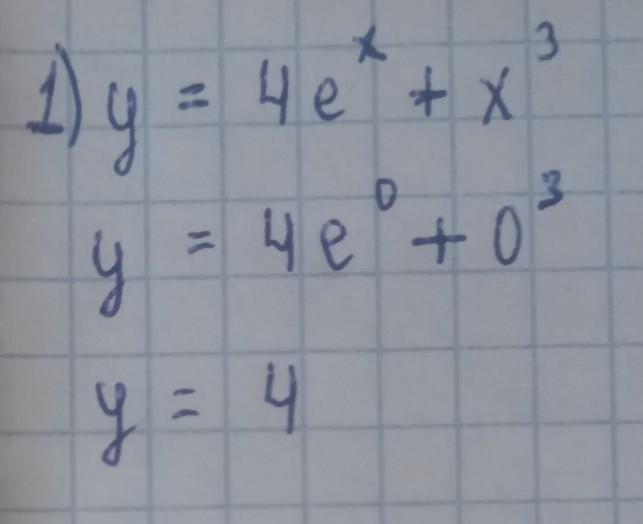 1) y = 4e^x + x^3
y = 4e^0 + 0^3
y = 4